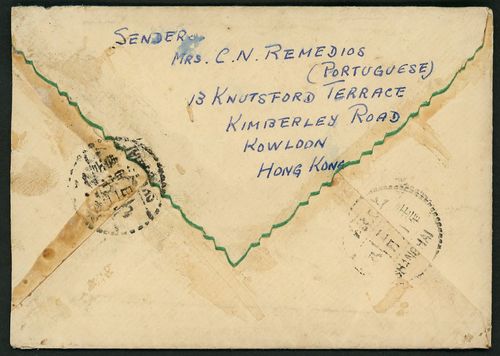 SENDER-
MRS. C. N. REMEDIOS
(PORTUGUESE)
13 KNUTSFORD TERRACE
KIMBERLEY ROAD
KOWLOON
HONG KONG
SHANGHAI